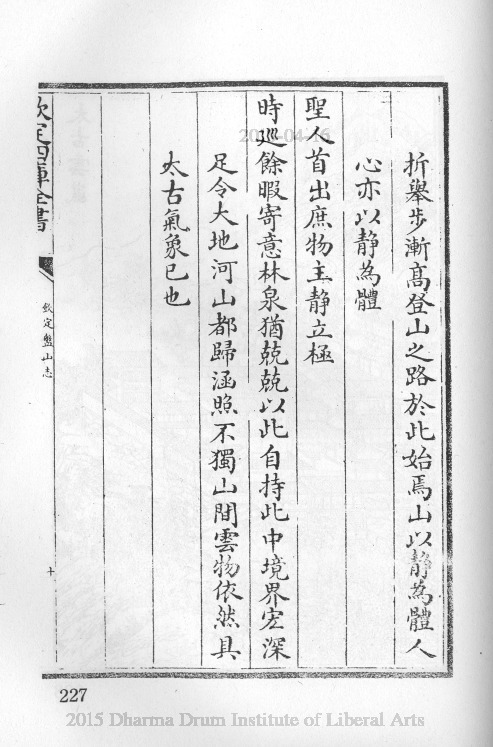 折舉步漸高登山之路於此始焉山以静為體人
心亦以静為體
聖人首出庶物主静立極
時廵餘暇寄意林泉猶兢兢以此自持此中境界宏深
足令大地河山都歸涵照不獨山間雲物依然具
太古氣象已也
欽定四庫全書
欽定盤山志
十
227
2015 Dharma Drum Institute of Liberal Arts